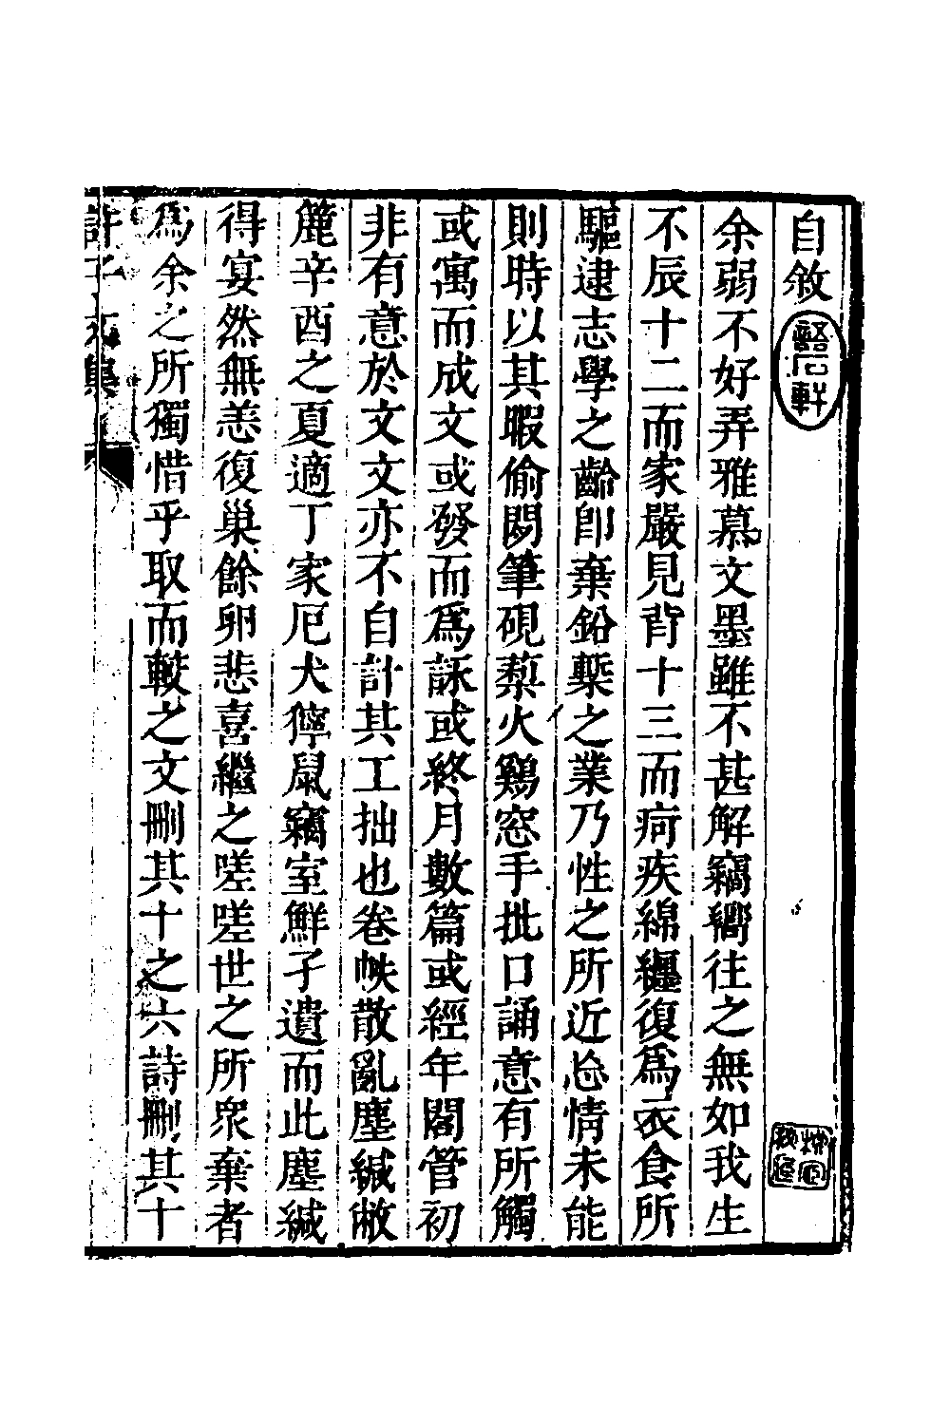 自敘
余弱不好弄雅慕文墨雖不甚解竊嚮往之無如我生
不辰十二而家嚴見背十三而疴疾綿纏復爲衣食所
驅逮志學之齡卽棄鉛槧之業乃性之所近忩情未能
則時以其暇偷閱筆硯藜火鷄窓手批口誦意有所觸
或寓而成文或發而爲詠或終月數篇或經年閣管初
非有意於文文亦不自計其工拙也卷帙散亂塵緘敝
簏辛酉之夏適丁家厄犬儜鼠竊室鮮孑遺而此塵緘
得宴然無恙復巢餘卵悲喜繼之嗟嗟世之所衆棄者
爲余之所獨惜乎取而較之文刪其十之六詩刪其十
許子文集